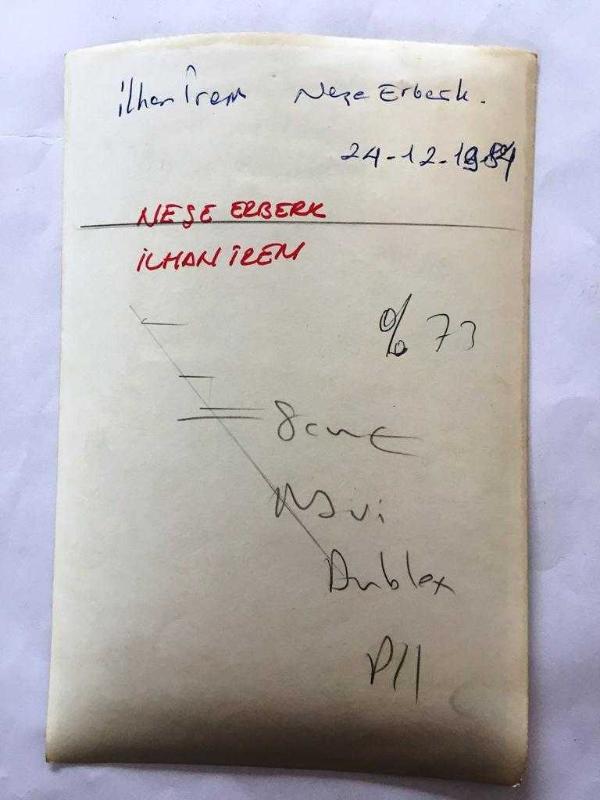 İlhan İrem Neşe Erberk.
24-12-1984
NEŞE ERBERK
İLHAN İREM
% 73
8 cm
Mavi
Dublex
P11